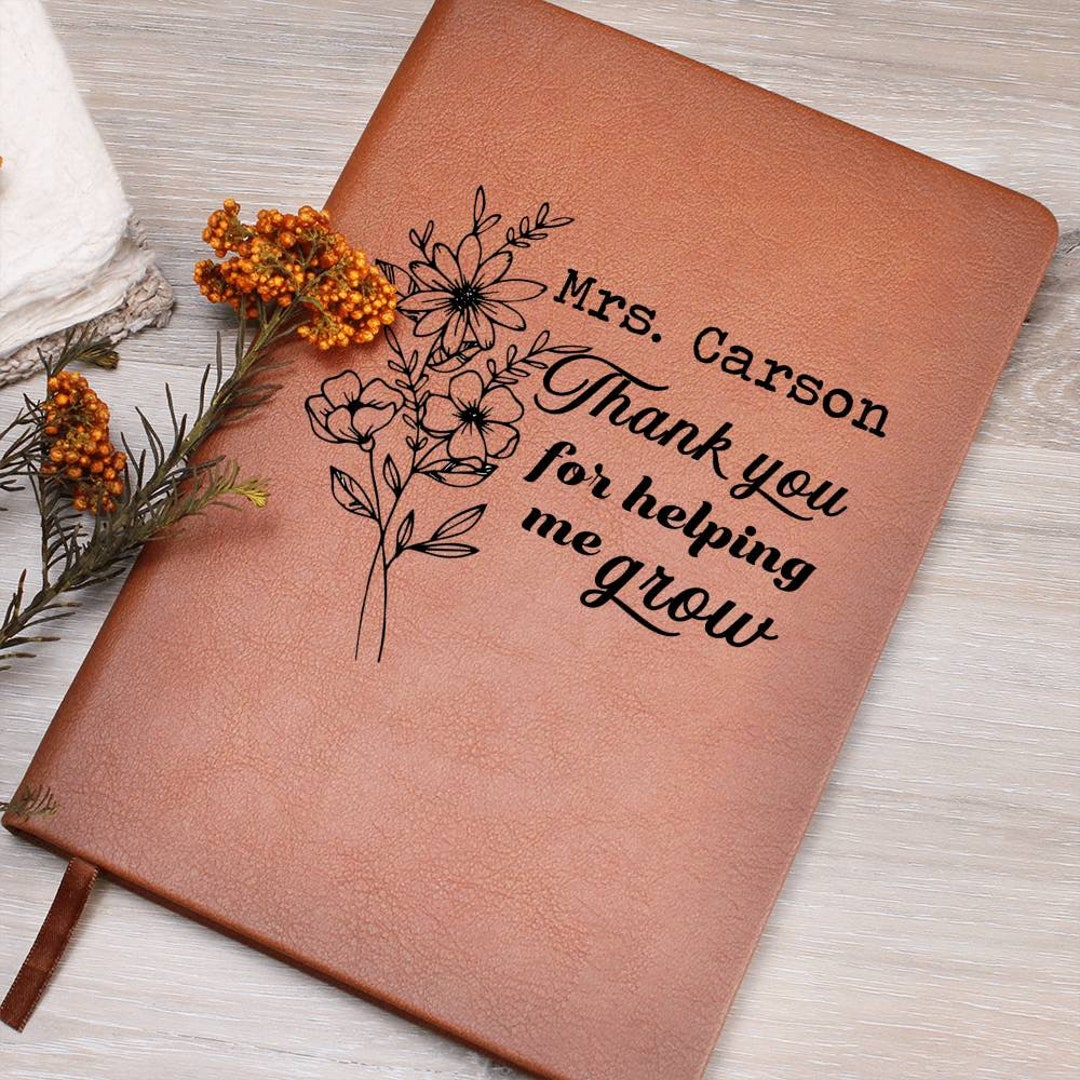 Mrs. Carson
Thank you
for helping
me grow